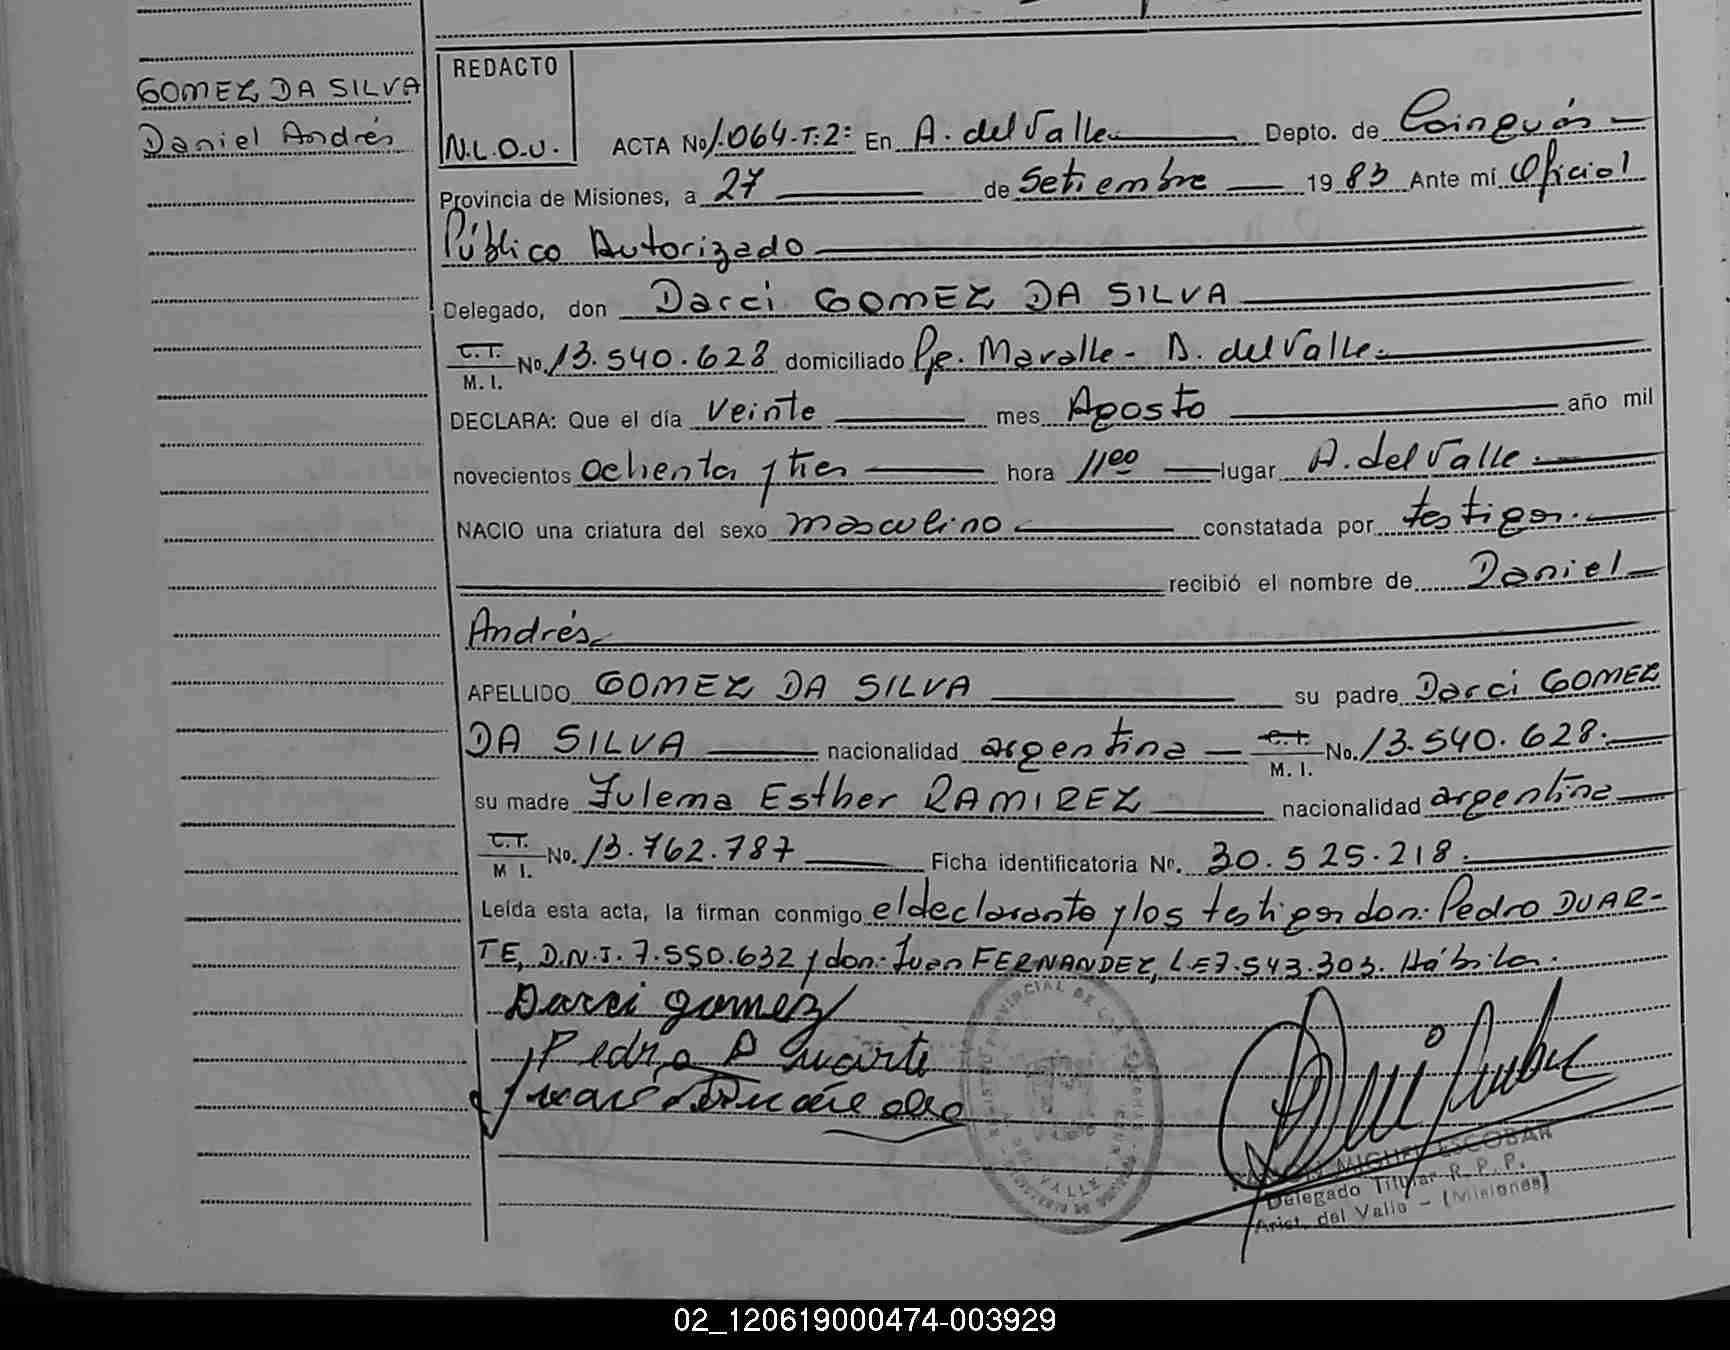 GOMEZ DA SILVA
Daniel Andrés
REDACTO
N.L.O.U.
ACTA No 1.064.T:2º En A. del Valle Depto. de Cainguás
Provincia de Misiones, a 27 de Setiembre 1983 Ante mí Oficial
Público Autorizado
Delegado, don Darci GOMEZ DA SILVA
C.T. M. I. No. 13.540.628 domiciliado Pje. Maralle - A. del Valle.
DECLARA: Que el día Veinte mes Agosto año mil
novecientos ochenta y tres hora 11⁰⁰ lugar A. del Valle.
NACIO una criatura del sexo masculino constatada por testigos.
recibió el nombre de Daniel
Andrés
APELLIDO GOMEZ DA SILVA su padre Darci GOMEZ
DA SILVA nacionalidad argentina C.I. M. I. No. 13.540.628.
su madre Zulema Esther RAMIREZ nacionalidad argentina
C.T. M I. No. 13.762.787 Ficha identificatoria No. 30.525.218.
Leída esta acta, la firman conmigo el declarante y los testigos don: Pedro DUAR-
TE, D.N.I. 7.550.632 y don: Juan FERNANDEZ, L.E 7.543.303. Hábiles.
Darci gomez
Pedro A Duarte
MIGUEL ESCOBAR
Delegado Titular R. P. P.
Arist. del Valle - (Misiones)
02_120619000474-003929